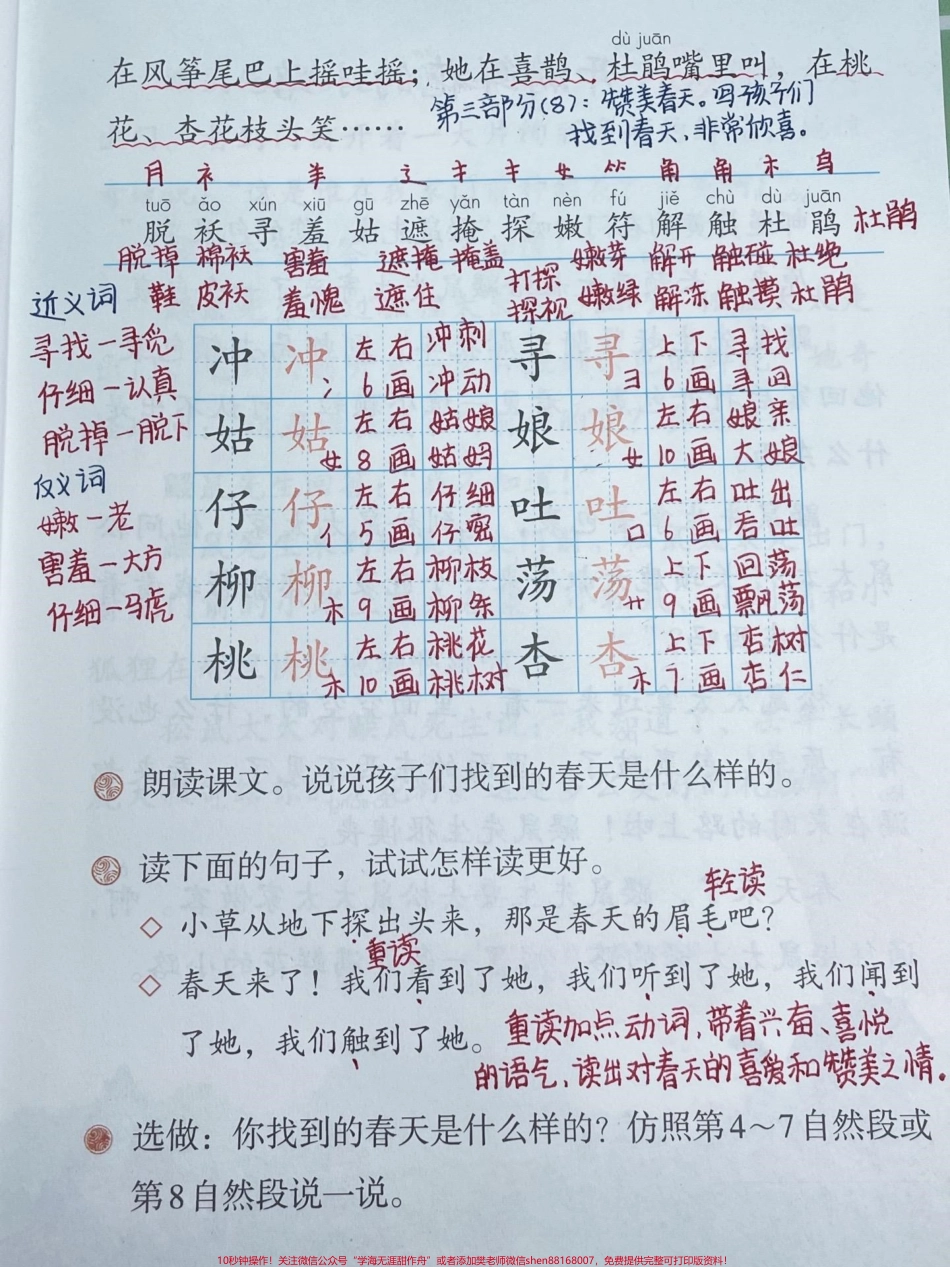 dù juān
在风筝尾巴上摇哇摇；她在喜鹊、杜鹃嘴里叫，在桃
花、杏花枝头笑……
第三部分(8)：赞美春天。写孩子们
找到春天，非常欣喜。
月 衤 羊 辶 扌 扌 女 ⺮ 角 角 木 鸟
tuō ǎo xún xiū gū zhē yǎn tàn nèn fú jiě chù dù juān
脱 袄 寻 羞 姑 遮 掩 探 嫩 符 解 触 杜 鹃 杜鹃
脱掉 棉袄 害羞 遮掩 掩盖 打探 嫩芽 解开 触碰 杜绝
鞋 皮袄 羞愧 遮住 探视 嫩绿 解冻 触摸 杜鹃
近义词
寻找一寻觅
仔细一认真
脱掉一脱下
反义词
嫩一老
害羞一大方
仔细一马虎
冲 冲 左右 冲刺 寻 寻 上下 寻找
冫 6画 冲动 彐 6画 寻回
姑 姑 左右 姑娘 娘 娘 左右 娘亲
女 8画 姑妈 女 10画 大娘
仔 仔 左右 仔细 吐 吐 左右 吐出
亻 5画 仔密 口 6画 吞吐
柳 柳 左右 柳枝 荡 荡 上下 回荡
木 9画 柳条 艹 9画 飘荡
桃 桃 左右 桃花 杏 杏 上下 杏树
木 10画 桃树 木 7画 杏仁
朗读课文。说说孩子们找到的春天是什么样的。
读下面的句子，试试怎样读更好。
轻读
◇ 小草从地下探出头来，那是春天的眉毛吧？
重读
◇ 春天来了！我们看到了她，我们听到了她，我们闻到
了她，我们触到了她。
重读加点动词，带着兴奋、喜悦
的语气，读出对春天的喜爱和赞美之情。
选做：你找到的春天是什么样的？仿照第4～7自然段或
第8自然段说一说。
10秒钟操作！关注微信公众号“学海无涯甜作舟”或者添加樊老师微信shen88168007，免费提供完整可打印版资料！